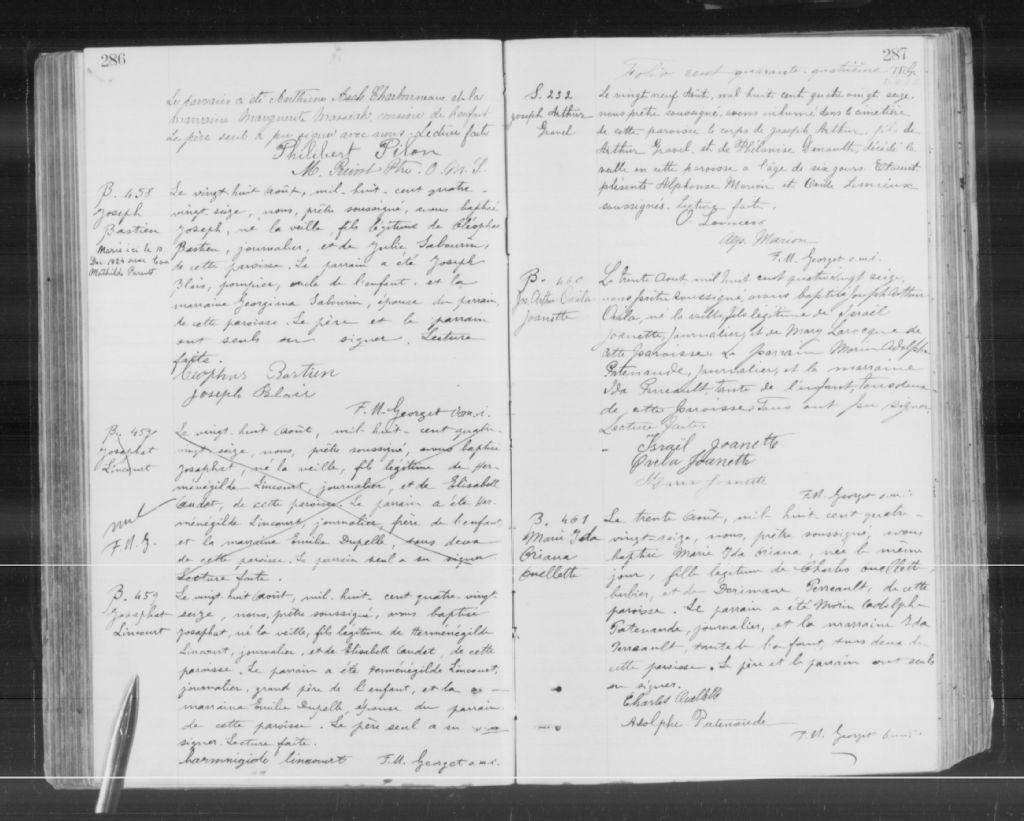 286
Le parrain a été Anthime Charbonneau et la
marraine Marguerite Massiah, cousine de l'enfant.
Le père seul a pu signer avec nous. Lecture faite
Philibert Pilon
Ptr. O.M.I.
B. 458
Joseph
Bastien
Marié ici le
Dec. 1924 avec
Mathilde
Le vingt huit Août, mil huit cent quatre-
vingt-seize, nous, prêtre soussigné, avons baptisé
Joseph, né la veille, fils légitime de Cléophas
Bastien, journalier, et de Julie Sabourin,
de cette paroisse. Le parrain a été Joseph
Blais, pompier, oncle de l'enfant, et la
marraine Georgina Sabourin, épouse du parrain,
de cette paroisse. Le père et le parrain
ont seuls su signer. Lecture
faite.
Cleophas Bastien
Joseph Blair
F.M. Georget o.m.i.
B. 459
Josaphat
Lincourt
nul
F.M.G.
Le vingt huit Août, mil huit-cent quatre-
vingt seize, nous, prêtre soussigné, avons baptisé
Josaphat, né la veille, fils légitime de Her-
ménégilde Lincourt, journalier, et de Elisabeth
Caudet, de cette paroisse. Le parrain a été Her-
ménégilde Lincourt, journalier, frère de l'enfant
et la marraine Emilie Dupelle, tous deux
de cette paroisse. Le parrain seul a su signer
Lecture faite.
B. 459
Josaphat
Lincourt
Le vingt huit Août, mil huit cent quatre vingt
seize, nous, prêtre soussigné, avons baptisé
Josaphat, né la veille, fils légitime de Herménégilde
Lincourt, journalier, et de Elisabeth Caudet, de cette
paroisse. Le parrain a été Herménégilde Lincourt,
journalier, grand père de l'enfant, et la
marraine Emilie Dupelle, épouse du parrain
de cette paroisse. Le père seul a su
signer. Lecture faite.
harmnigiole lincourt F.M. Georget o.m.i.
287
Folio cent quarante-quatrième
S. 232
Joseph Arthur
Gravel
Le vingt neuf Août, mil huit cent quatre vingt seize
nous prêtre soussigné, avons inhumé dans le cimetière
de cette paroisse le corps de Joseph Arthur, fils de
Arthur Gravel et de Philanise Denault, décédé la
veille en cette paroisse à l'âge de six jours. Etaient
présents Alphonse Marion et Ovide Lemieux
soussignés. Lecture faite.
O. Lemieux
Alp. Marion
F.M. Georget o.m.i.
B. 460
Jos. Arthur Oréla
Joanette
Le trente Aout mil huit cent quatre vingt seize,
nous prêtre soussigné, avons baptisé Joseph Arthur
Oréla, né la veille, fils légitime de Israël
Joanette, journalier, et de Mary Larocque de
cette paroisse. Le parrain Morin Adolphe
Patenaude, journalier, et la marraine
Ida Perreault, tante de l'enfant, tous deux
de cette paroisse. Tous ont su signer
Lecture faite.
Israël Joanette
Orela Joanette
Maria Joanette
F.M. Georget o.m.i.
B. 461
Marie Ida
Oriana
Ouellette
Le trente Août, mil huit cent quatre-
vingt-seize, nous, prêtre soussigné, avons
baptisé Marie Ida Oriana, née le même
jour, fille légitime de Charles Ouellette
barbier, et de Dorimane Perreault, de cette
paroisse. Le parrain a été Morin Adolphe
Patenaude, journalier, et la marraine Ida
Perreault, tante de l'enfant, tous deux de
cette paroisse. Le père et le parrain ont seuls
su signer.
Charles Ouellette
Adolphe Patenaude
F.M. Georget o.m.i.